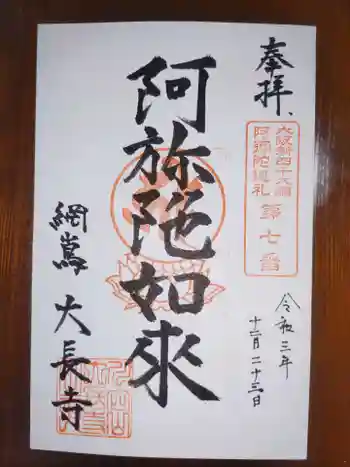 奉拝、
大阪新四十八願
阿弥陀巡礼
第七番
令和三年
十二月二十三日
阿弥陀如來
網嶌 大長寺